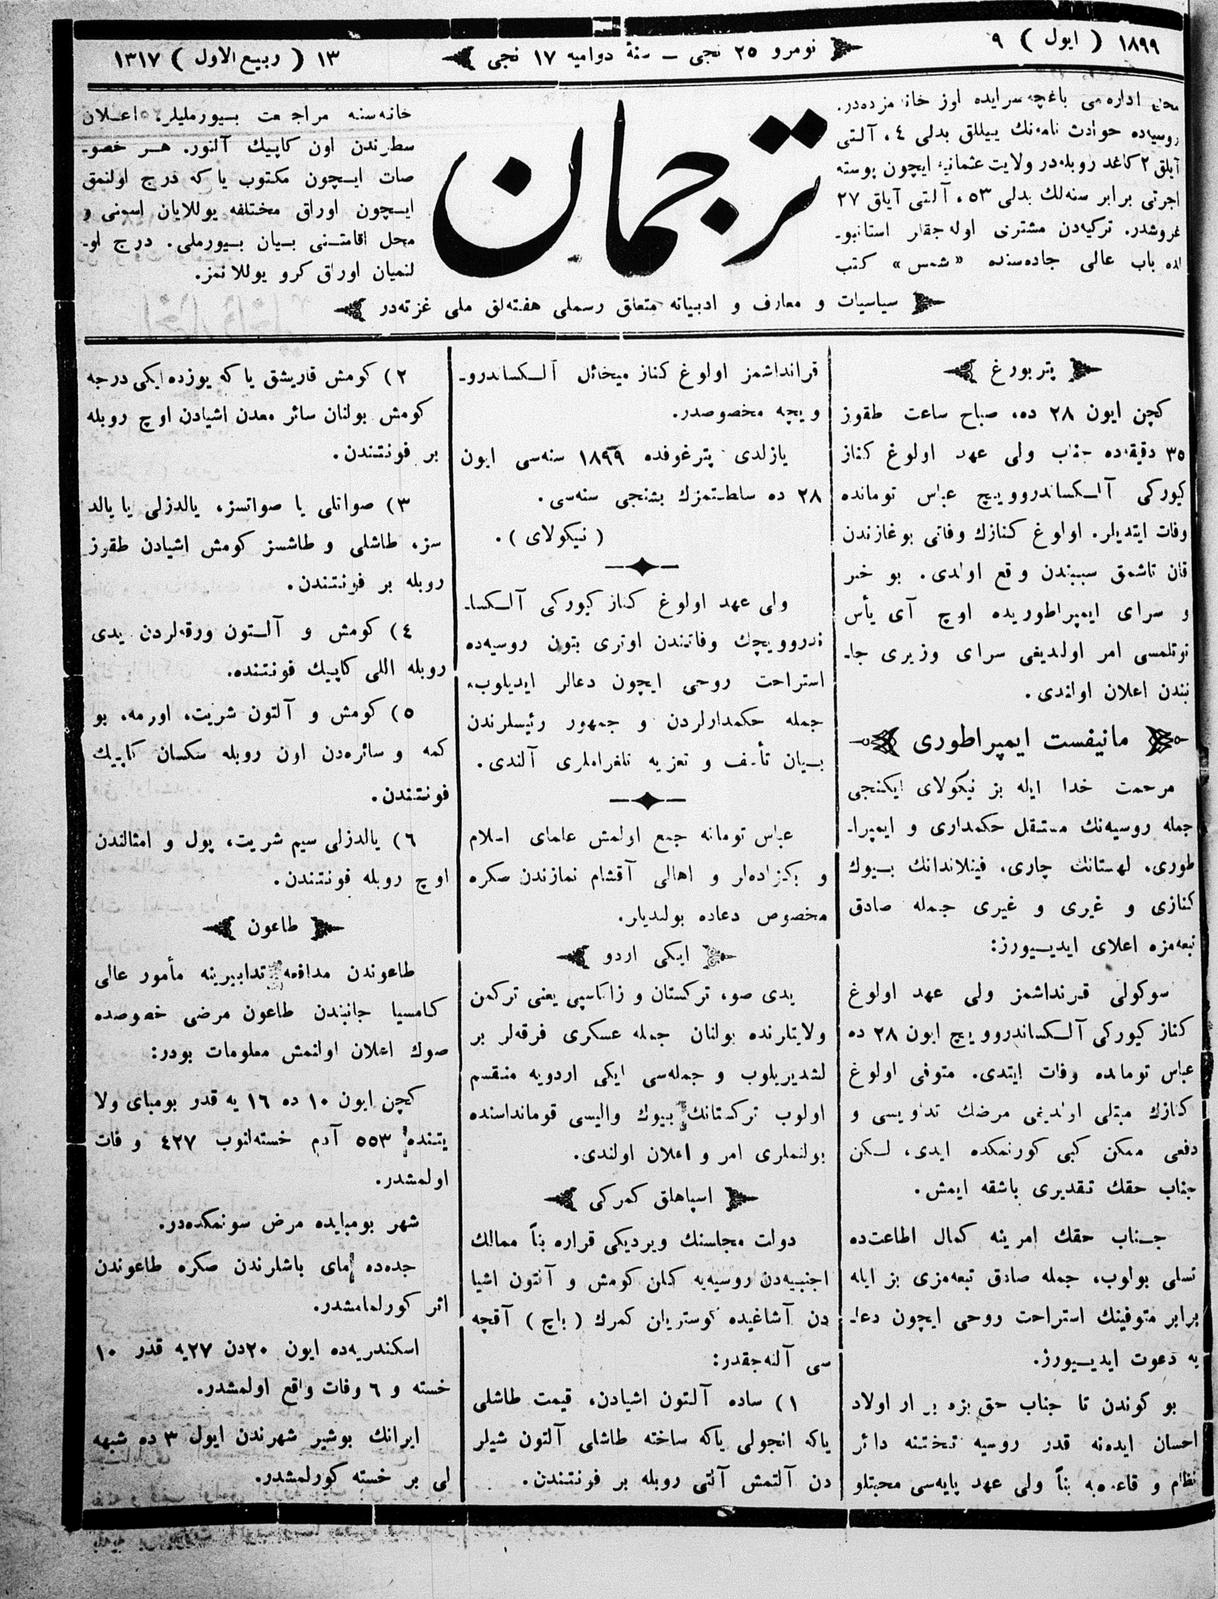 ١٨٩٩ ( ايول ) ٩
نومرو ٢٥ نجى ــ سنهٔ دواميه ١٧ نجى
١٣ ( ربيع الاول ) ١٣١٧
محل اداره‌مى باغچه‌سرايده اوز خانه‌مزده‌در.
روسيه‌ده حوادث نامه‌نك ييللق بدلى ٤، آلتى
آيلق ٢ كاغد روبله‌در ولايت عثمانيه ايچون پوسته
اجرتى برابر سنه‌لك بدلى ٥٣، آلتى آيلق ٢٧
غروشدر. تركيه‌دن مشترى اوله‌جقلر استانبو‍ـ
لده باب عالى جاده‌سنده «شمس» كتب
ترجمان
خانه‌سنه مراجعت بيورمليلر. اعلان
سطرندن اون كاپيك آلنور. هر خصو‍ـ
صات ايچون مكتوب ياكه درج اولنمق
ايچون اوراق مختلفه يوللايان اسمنى و
محل اقامتنى بيان بيورملى. درج او‍ـ
لنميان اوراق كرو يوللانمز.
سياسيات و معارف و ادبياته متعلق رسملى هفته‌لق ملى غزته‌در
پتربورغ
كچن ايون ٢٨ ده، صباح ساعت طقوز
٣٥ دقيقه‌ده جناب ولى عهد اولوغ كناز
كيوركى آلكساندروويچ عباس تومانده
وفات ايتديلر. اولوغ كنازك وفاتى بوغازندن
قان تاشمق سببندن وقع اولدى. بو خبر
و سراى ايمپراطوريده اوچ آى يأس
توتلمسى امر اولديغى سراى وزيرى جا‍ـ
نبندن اعلان اولندى.
مانيفست ايمپراطورى
مرحمت خدا ايله بز نيكولاى ايكنجى
جمله روسيه‌نك مستقل حكمدارى و ايمپرا‍ـ
طورى، لهستانك چارى، فينلاندانك بيوك
كنازى و غيرى و غيرى جمله صادق
تبعه‌مزه اعلاى ايديورز:
سوكولى قرنداشمز ولى عهد اولوغ
كناز كيوركى آلكساندروويچ ايون ٢٨ ده
عباس تومانده وفات ايتدى. متوفى اولوغ
كنازك مبتلى اولديغى مرضك تداويسى و
دفعى ممكن كبى كورنمكده ايدى، لكن
جناب حقك تقديرى باشقه ايمش.
جناب حقك امرينه كمال اطاعت‌ده
تسلى بولوب، جمله صادق تبعه‌مزى بز ايله
برابر متوفينك استراحت روحى ايچون دعا‍ـ
يه دعوت ايديورز.
بو كوندن تا جناب حق بزه بر ار اولاد
احسان ايدنه قدر روسيه تختنه دائر
نظام و قاعده‌يه بناً ولى عهد پايه‌سى محبتلو
قرانداشمز اولوغ كناز ميخائل آلكساندرو‍ـ
ويچه مخصوصدر.
يازلدى پترغوفده ١٨٩٩ سنه‌سى ايون
٢٨ ده سلطنتمزك بشنجى سنه‌سى.
( نيكولاى ).
ولى عهد اولوغ كناز كيوركى آلكسا‍ـ
ندروويچك وفاتندن اوترى بتون روسيه‌ده
استراحت روحى ايچون دعالر ايديلوب،
جمله حكمدارلردن و جمهور رئيسلرندن
بيان تأسف و تعزيه تلغرافلرى آلندى.
عباس تومانه جمع اولمش علماى اسلام
و بكزاده‌لر و اهالى آقشام نمازندن صكره
مخصوص دعاده بولنديلر.
ايكى اردو
يدى صو، تركستان و زاكاسپى يعنى تركمن
ولايتلرنده بولنان جمله عسكرى فرقه‌لر بر
لشديريلوب و جمله‌سى ايكى اردويه منقسم
اولوب تركستانك بيوك واليسى قومانداسنده
بولنملرى امر و اعلان اولندى.
اسپاهلق كمركى
دولت مجلسنك ويرديكى قراره بناً ممالك
اجنبيه‌دن روسيه‌يه كلن كومش و آلتون اشيا
دن آشاغيده كوستريلن كمرك ( باج ) آقچه
سى آلنه‌جقدر:
١) ساده آلتون اشيادن، قيمت طاشلى
ياكه انجولى ياكه ساخته طاشلى آلتون شيلر
دن آلتمش آلتى روبله بر فونتندن.
٢) كومش قاريشق ياكه يوزده ايكى درجه
كومش بولنان سائر معدن اشيادن اوچ روبله
بر فونتندن.
٣) صواتلى يا صواتسز، يالدزلى يا يالد
سز، طاشلى و طاشسز كومش اشيادن طقوز
روبله بر فونتندن.
٤) كومش و آلتون ورقه‌لردن يدى
روبله اللى كاپيك فونتنده.
٥) كومش و آلتون شريت، اورمه، بو
كمه و سائره‌دن اون روبله سكسان كاپيك
فونتندن.
٦) يالدزلى سيم شريت، پول و امثالندن
اوچ روبله فونتندن.
طاعون
طاعوندن مدافعه تدابيرينه مأمور عالى
كامسيا جانبندن طاعون مرضى خصوصده
صوك اعلان اولنمش معلومات بودر:
كچن ايون ١٠ ده ١٦ يه قدر بومباى ولا
يتنده ٥٥٣ آدم خسته‌لنوب ٤٢٧ وفات
اولمشدر.
شهر بومبايده مرض سونمكده‌در.
جده‌ده ماى باشلرندن صكره طاعوندن
اثر كورلمامشدر.
اسكندريه‌ده ايون ٢٠دن ٢٧يه قدر ١٠
خسته و ٦ وفات واقع اولمشدر.
ايرانك بوشير شهرندن ايول ٣ ده شبهه
لى بر خسته كورلمشدر.